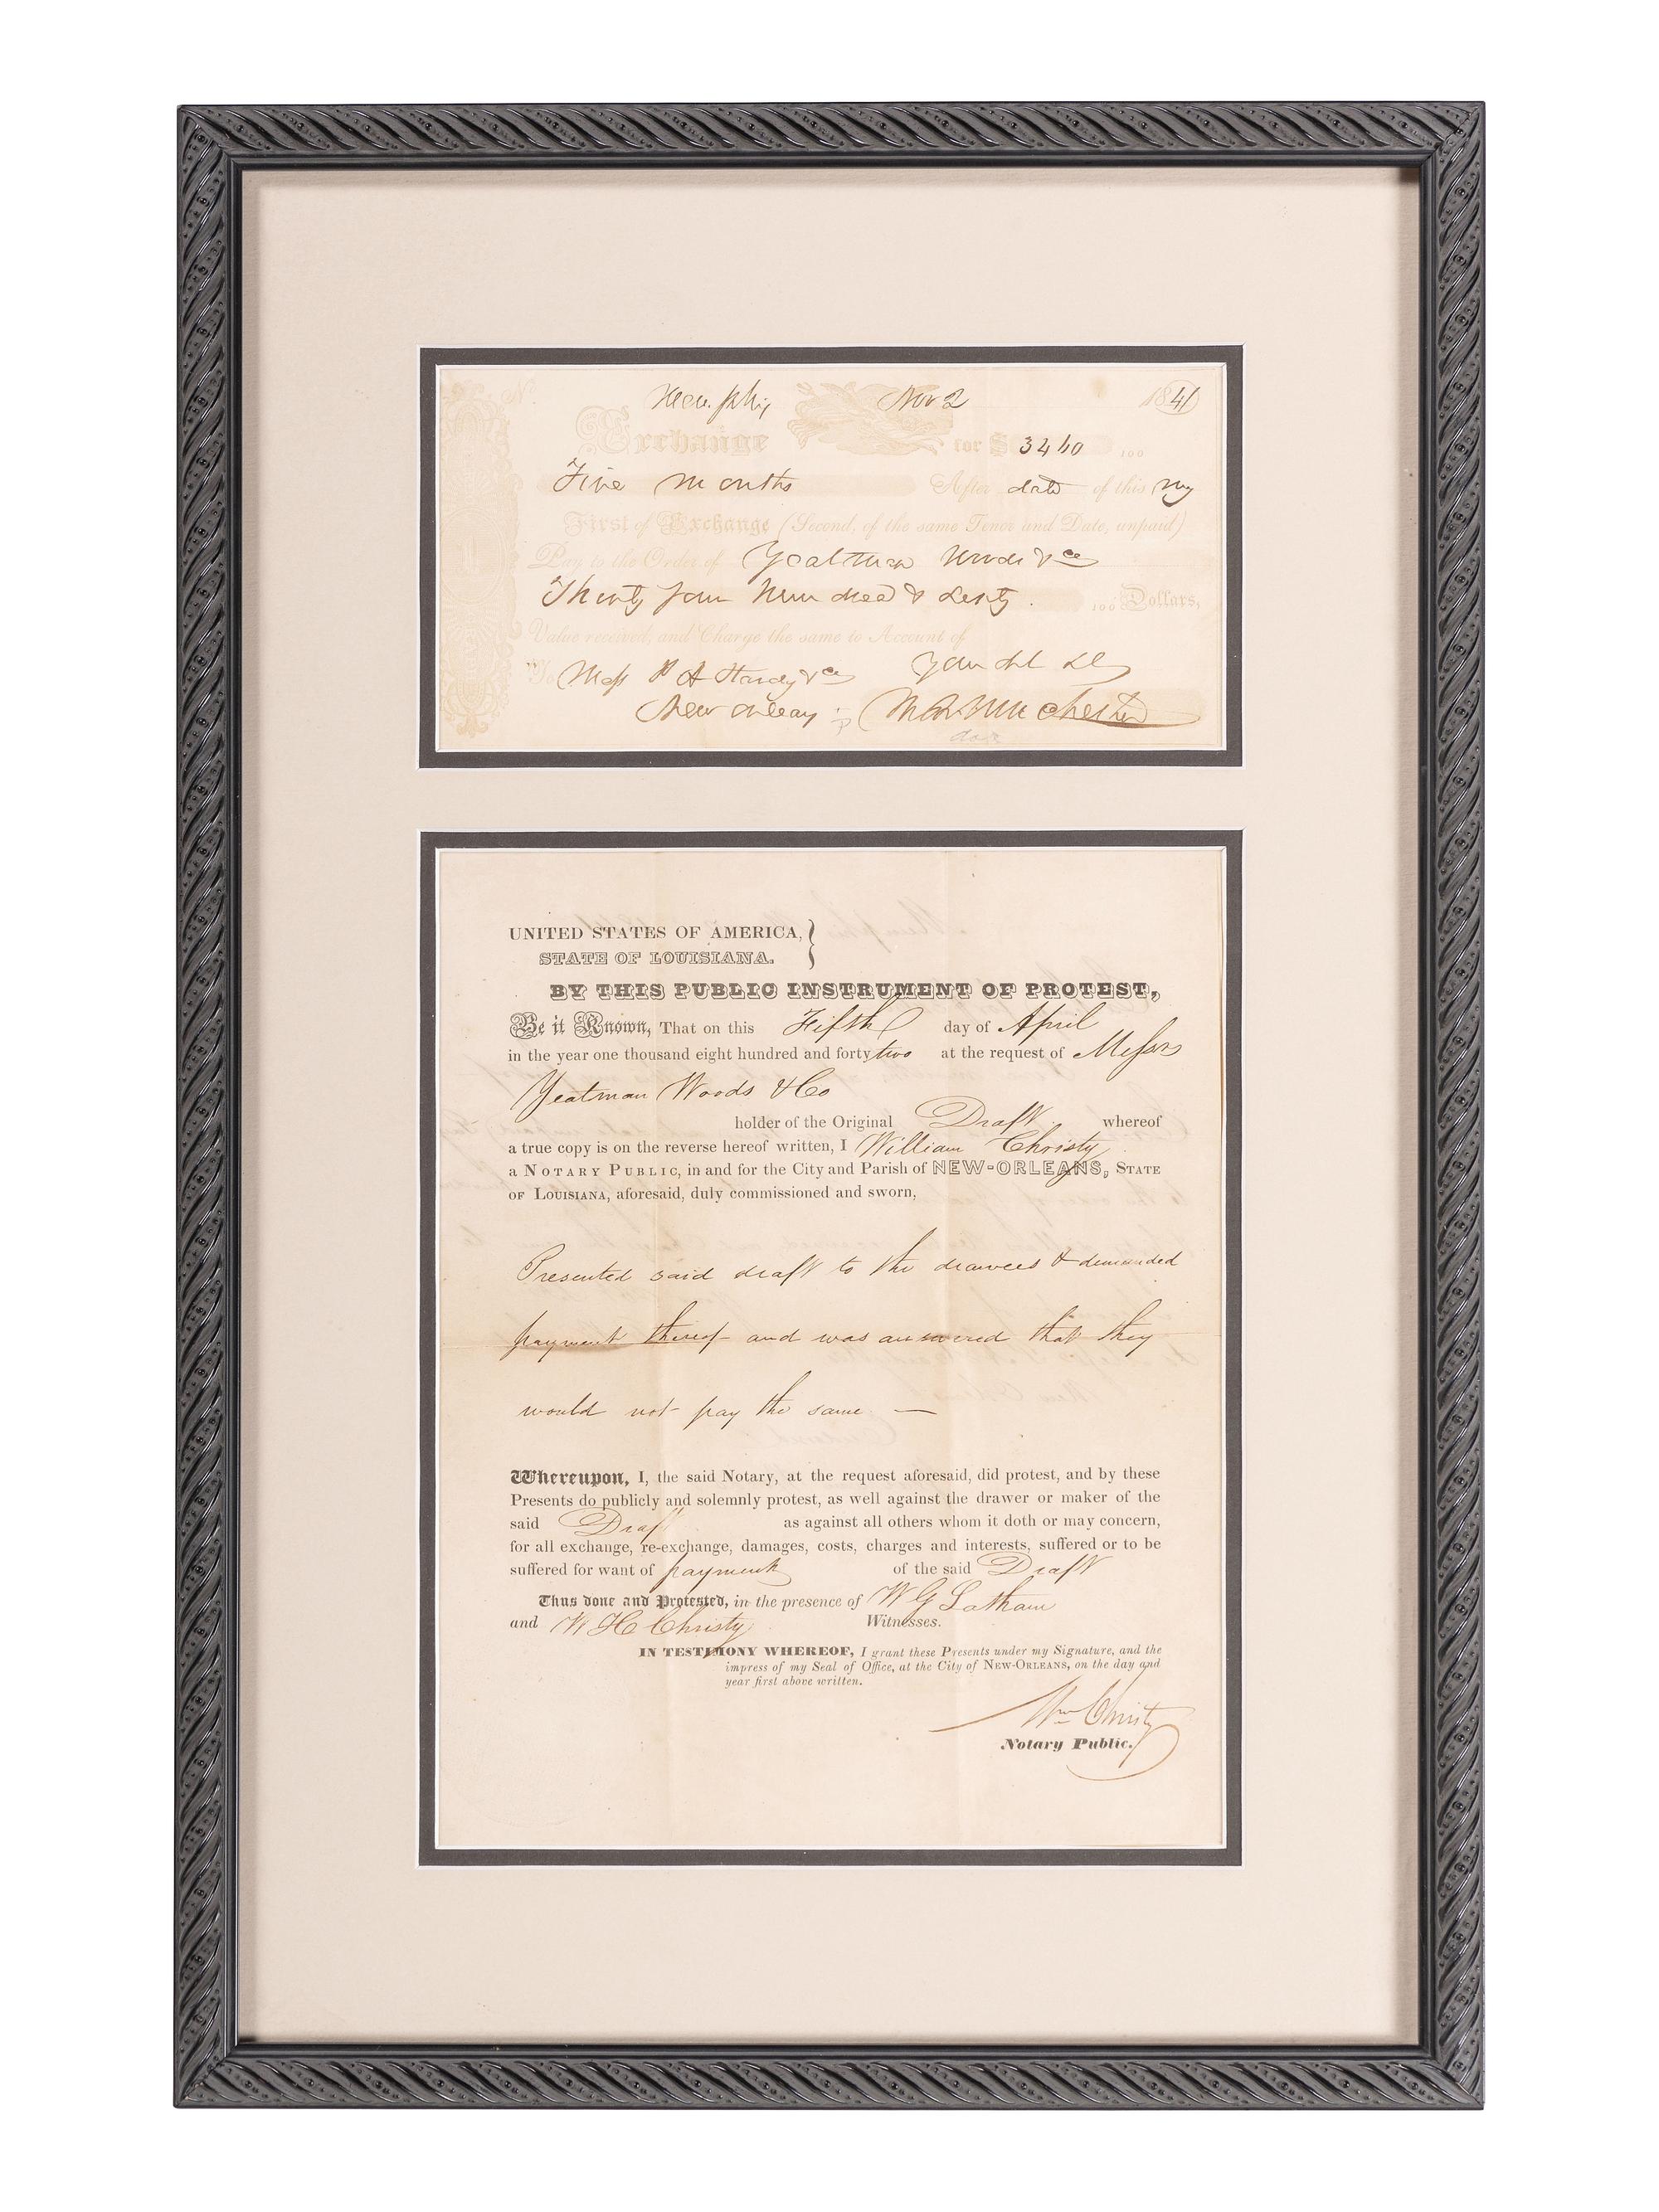 No. Memphis Nov 2 1841
Exchange for $ 3460 100
Five months After date of this my
First of Exchange (Second, of the same Tenor and Date, unpaid)
Pay to the Order of Yeatman Woods & Co
Thirty four Hundred & Sixty 100 Dollars,
Value received, and Charge the same to Account of
To Mess Hardy & Co Your Obt
New Orleans M B Winchester
UNITED STATES OF AMERICA,
STATE OF LOUISIANA.
BY THIS PUBLIC INSTRUMENT OF PROTEST,
Be it Known, That on this Fifth day of April
in the year one thousand eight hundred and forty two at the request of Messrs
Yeatman Woods & Co
holder of the Original Draft whereof
a true copy is on the reverse hereof written, I William Christy
a NOTARY PUBLIC, in and for the City and Parish of NEW-ORLEANS, STATE
OF LOUISIANA, aforesaid, duly commissioned and sworn,
Presented said draft to the drawees & demanded
payment thereof and was answered that they
would not pay the same —
Whereupon, I, the said Notary, at the request aforesaid, did protest, and by these
Presents do publicly and solemnly protest, as well against the drawer or maker of the
said Draft as against all others whom it doth or may concern,
for all exchange, re-exchange, damages, costs, charges and interests, suffered or to be
suffered for want of payment of the said Draft
Thus done and Protested, in the presence of W G Latham
and W H Christy Witnesses.
IN TESTIMONY WHEREOF, I grant these Presents under my Signature, and the
impress of my Seal of Office, at the City of NEW-ORLEANS, on the day and
year first above written.
Wm Christy
Notary Public.